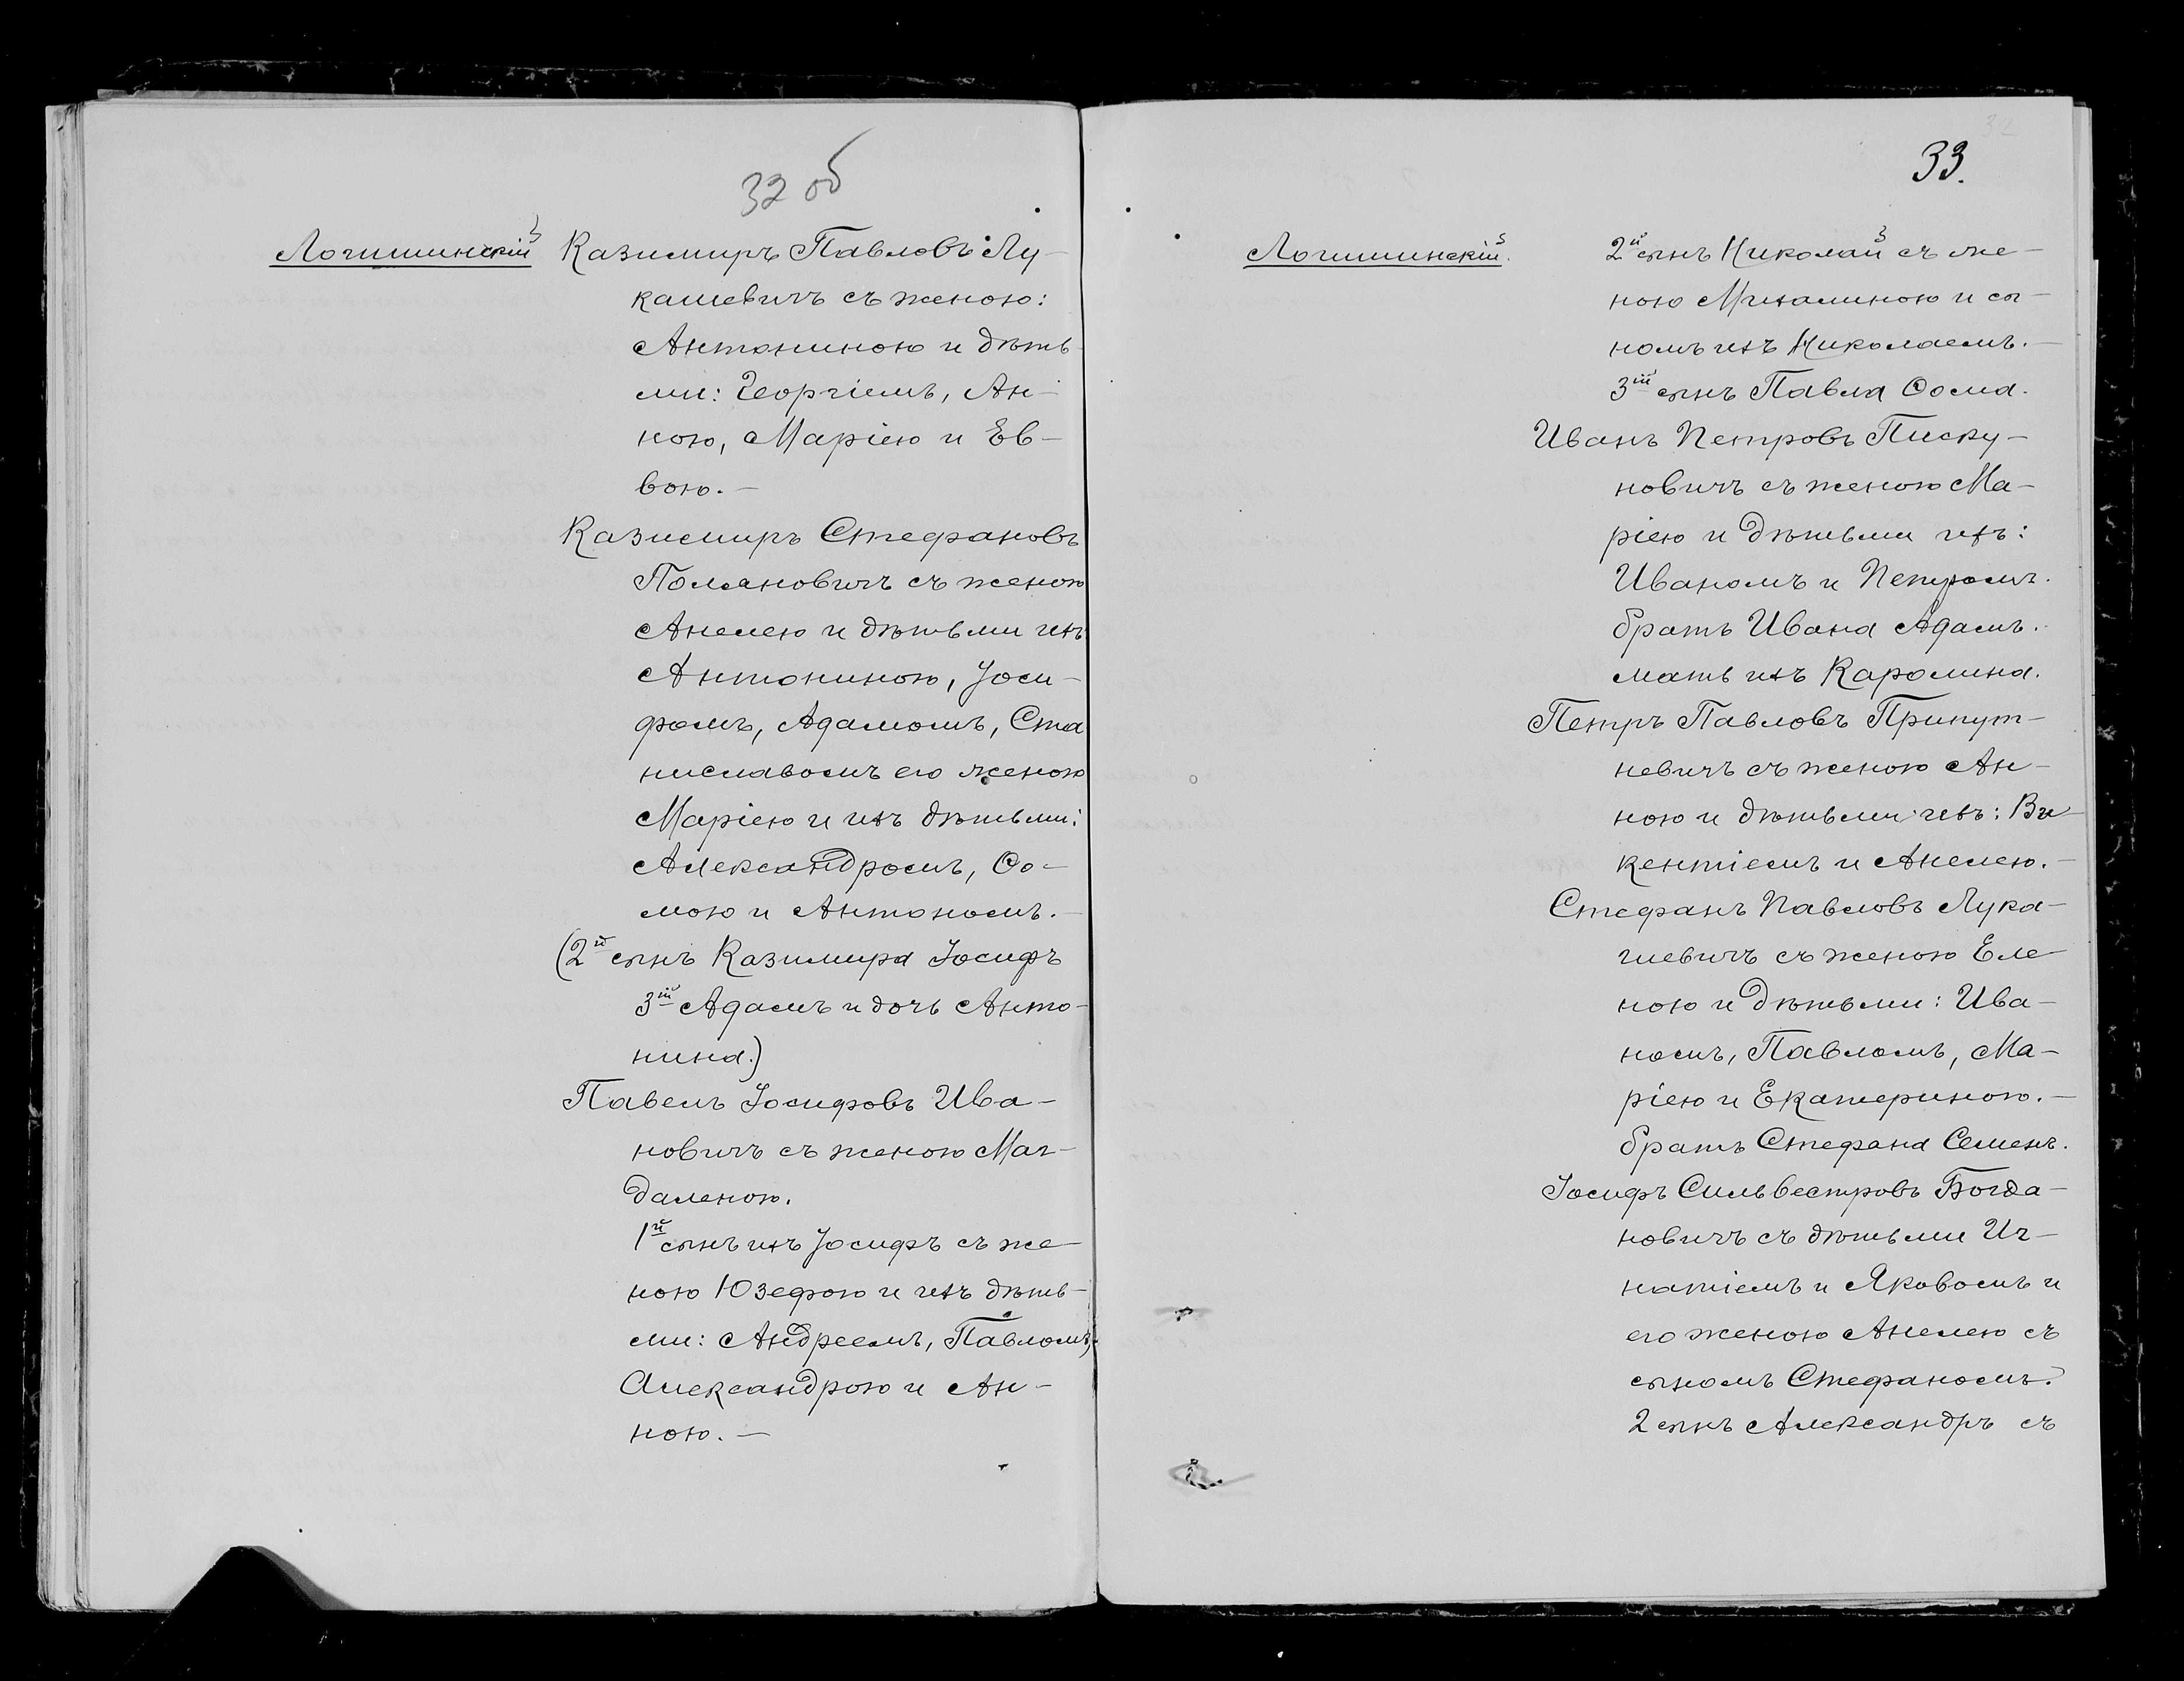 32 об
Логишинскій Казимиръ Павловъ Лу-
кашевичъ съ женою:
Антониною и дѣть
ми: Георгіемъ, Ан-
ною, Маріею и Ев-
вою.-
Казимиръ Стефановъ
Поманович съ женою
Анелею и дѣтьми ихъ
Антониною, Іоси-
фомъ, Адамомъ, Ста
ниславомъ его женою
Маріею и ихъ дѣтьми:
Александромъ, Ѳо-
мою и Антономъ.-
(2й сынъ Казимира Іосифъ
3ій Адамъ и дочь Анто-
нина.)
Павелъ Іосифовъ Ива-
новичъ съ женою Маг-
даленою.
1й сынъ ихъ Іосифъ съ же-
ною Юзефою и ихъ дѣть-
ми: Андреемъ, Павломъ,
Александрою и Ан-
ною.-
32
33.
Логишинскій. 2й сынъ Николай съ же-
ною Михалиною и сы-
номъ ихъ Николаемъ.-
3ій сынъ Павла Ѳома.
Иванъ Петровъ Писку-
новичъ съ женою Ма-
ріею и дѣтьми ихъ:
Иваномъ и Петромъ.
братъ Ивана Адамъ.
мать ихъ Каролина.
Петръ Павловъ Припут-
невичъ съ женою Ан-
ною и дѣтьми ихъ: Ви-
кентіемъ и Анелею.-
Стефанъ Павловъ Лука-
шевичъ съ женою Еле-
ною и дѣтьми: Ива-
номъ, Павломъ, Ма-
ріею и Екатериною.-
братъ Стефана Семенъ.
Іосифъ Сильвестровъ Богда-
новичъ съ дѣтьми Иг-
натіемъ и Яковомъ и
его женою Анелею съ
сыномъ Стефаномъ.
2 сынъ Александръ съ